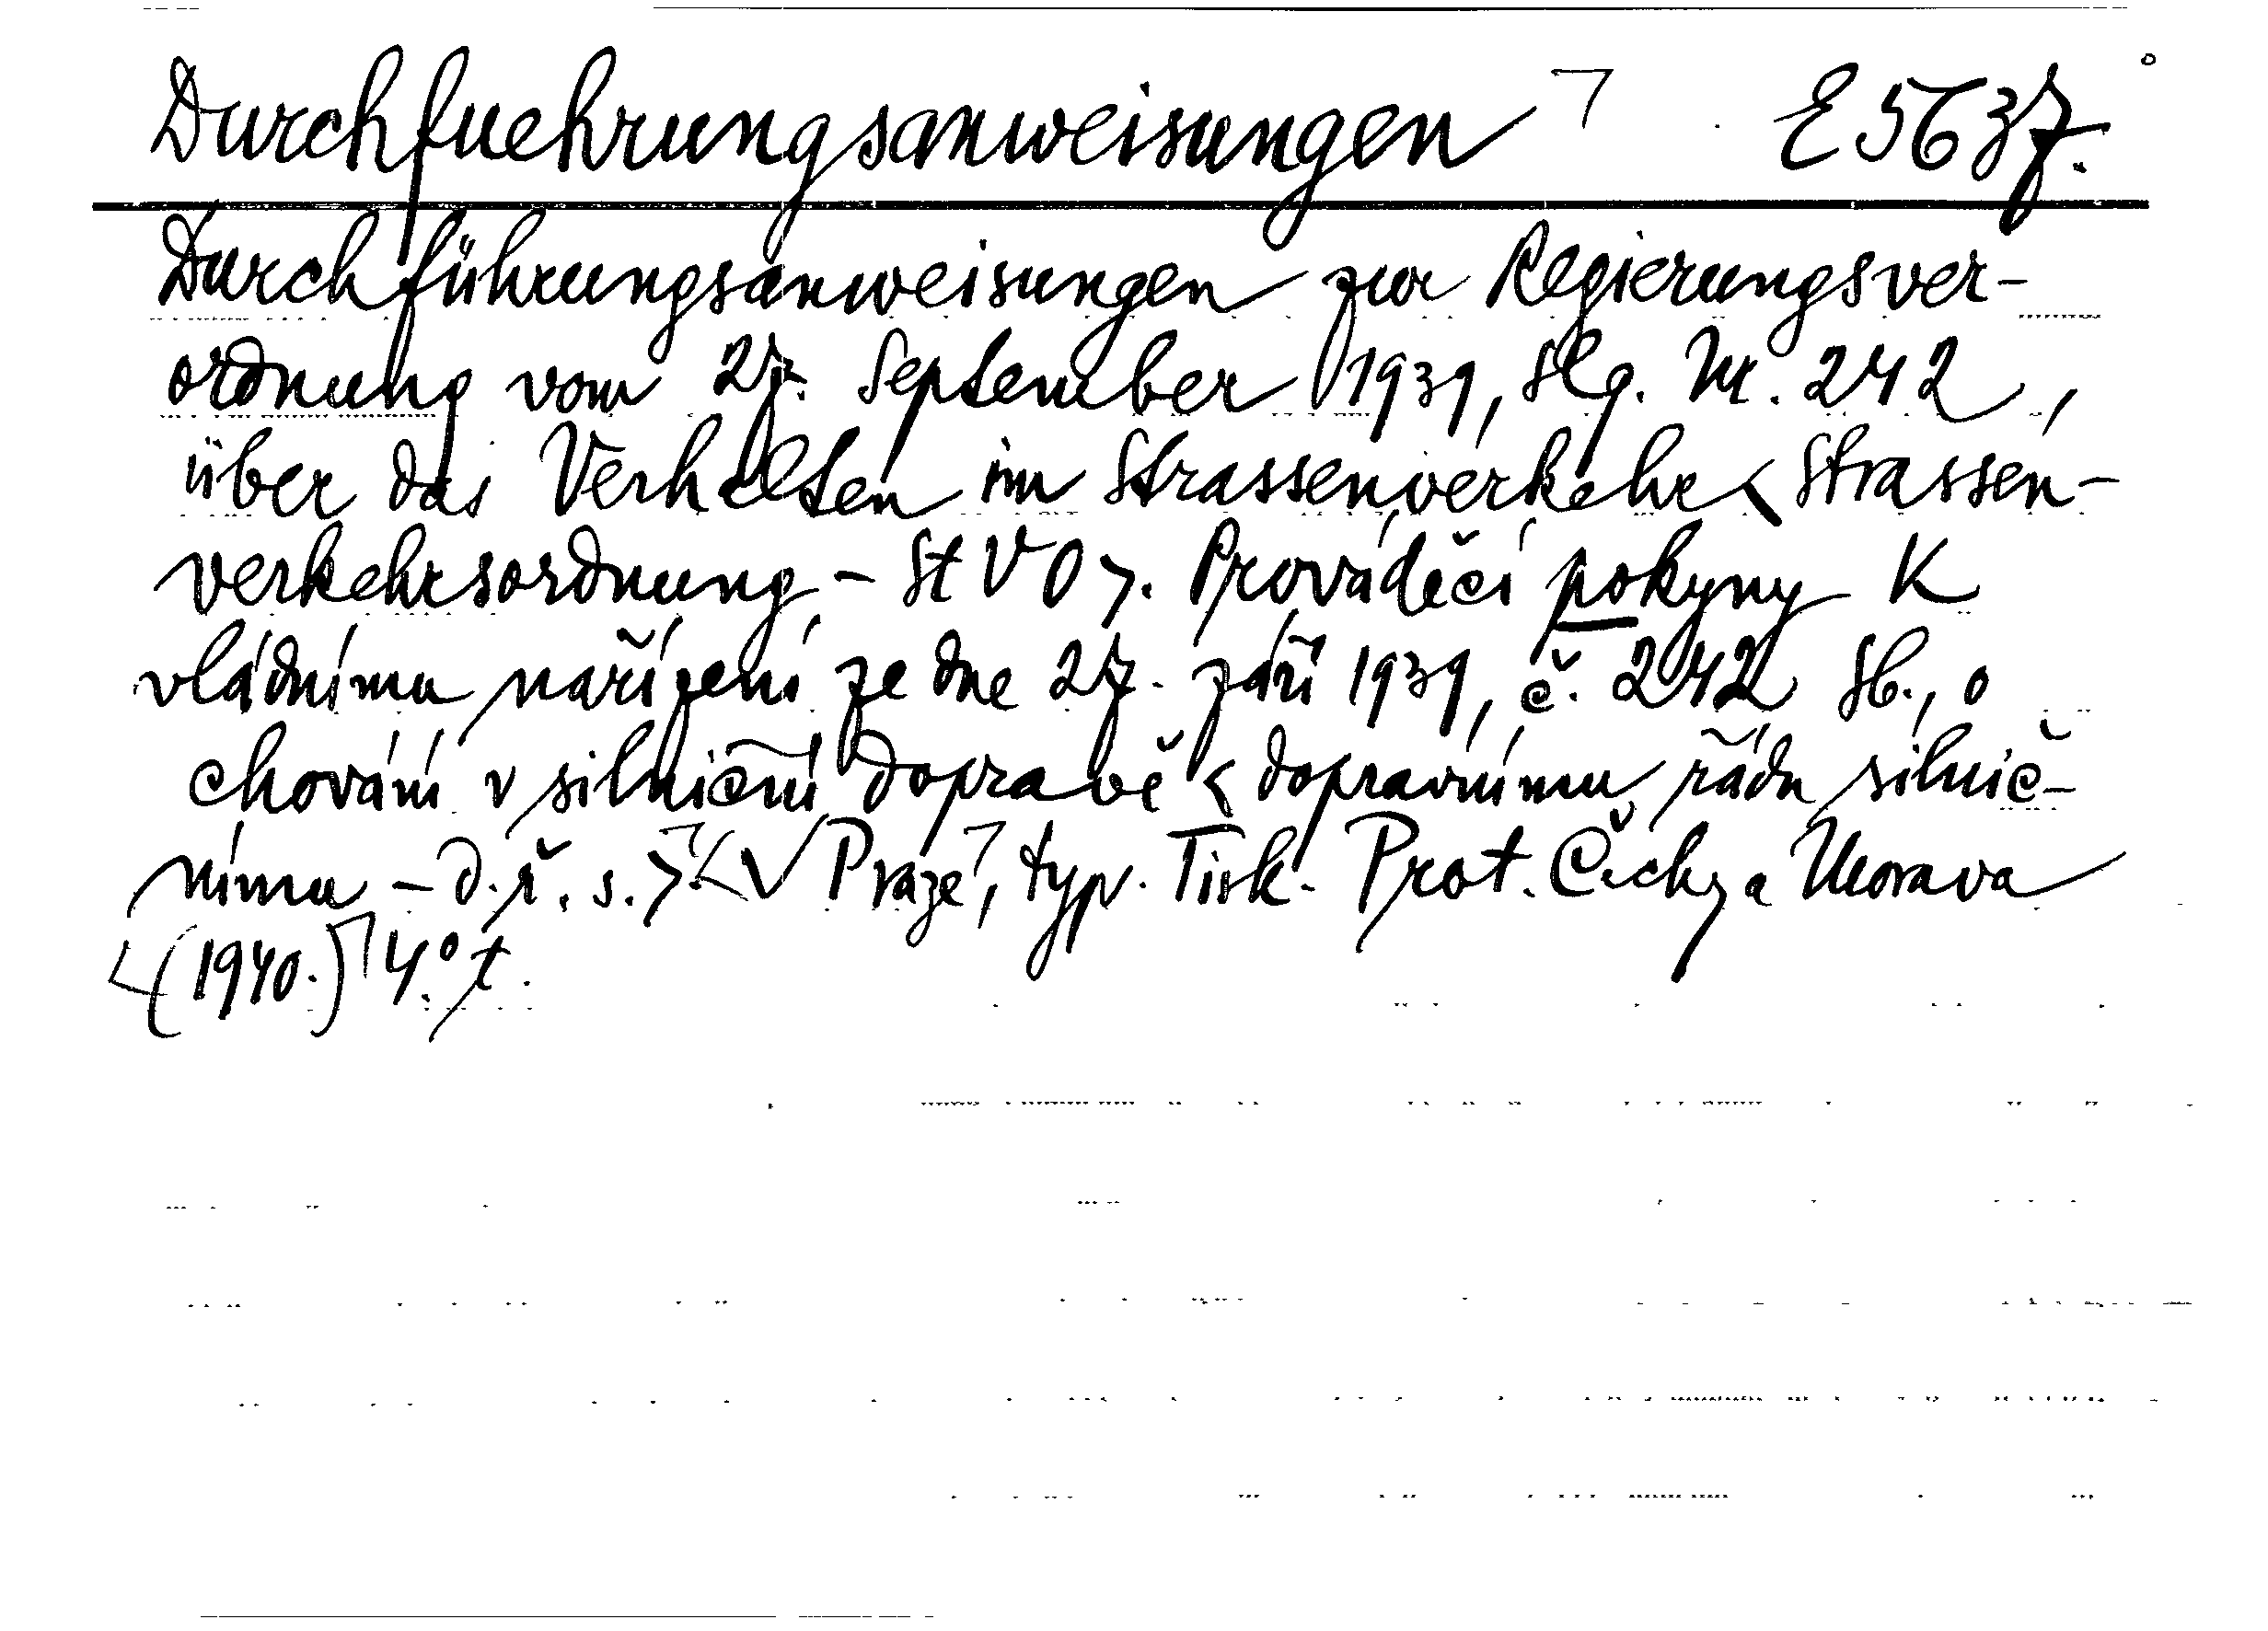 Durchfuehrungsanweisungen E 5637.
Durchführungsanweisungen zur Regierungsver-
ordnung vom 27. September 1939, Slg. Nr. 242,
über das Verhalten im Strassenverkehr < Strassen-
verkehrsordnung - St V O >. Prováděcí pokyny K
vládnímu nařízení ze dne 27. září 1939, č. 242 Sb., o
chování v silniční dopravě < dopravnímu řádu silnič-
nímu - d. ř. s. >. V Praze, typ. Tisk. Prot. Čechy a Morava
(1940.) 4.° t.